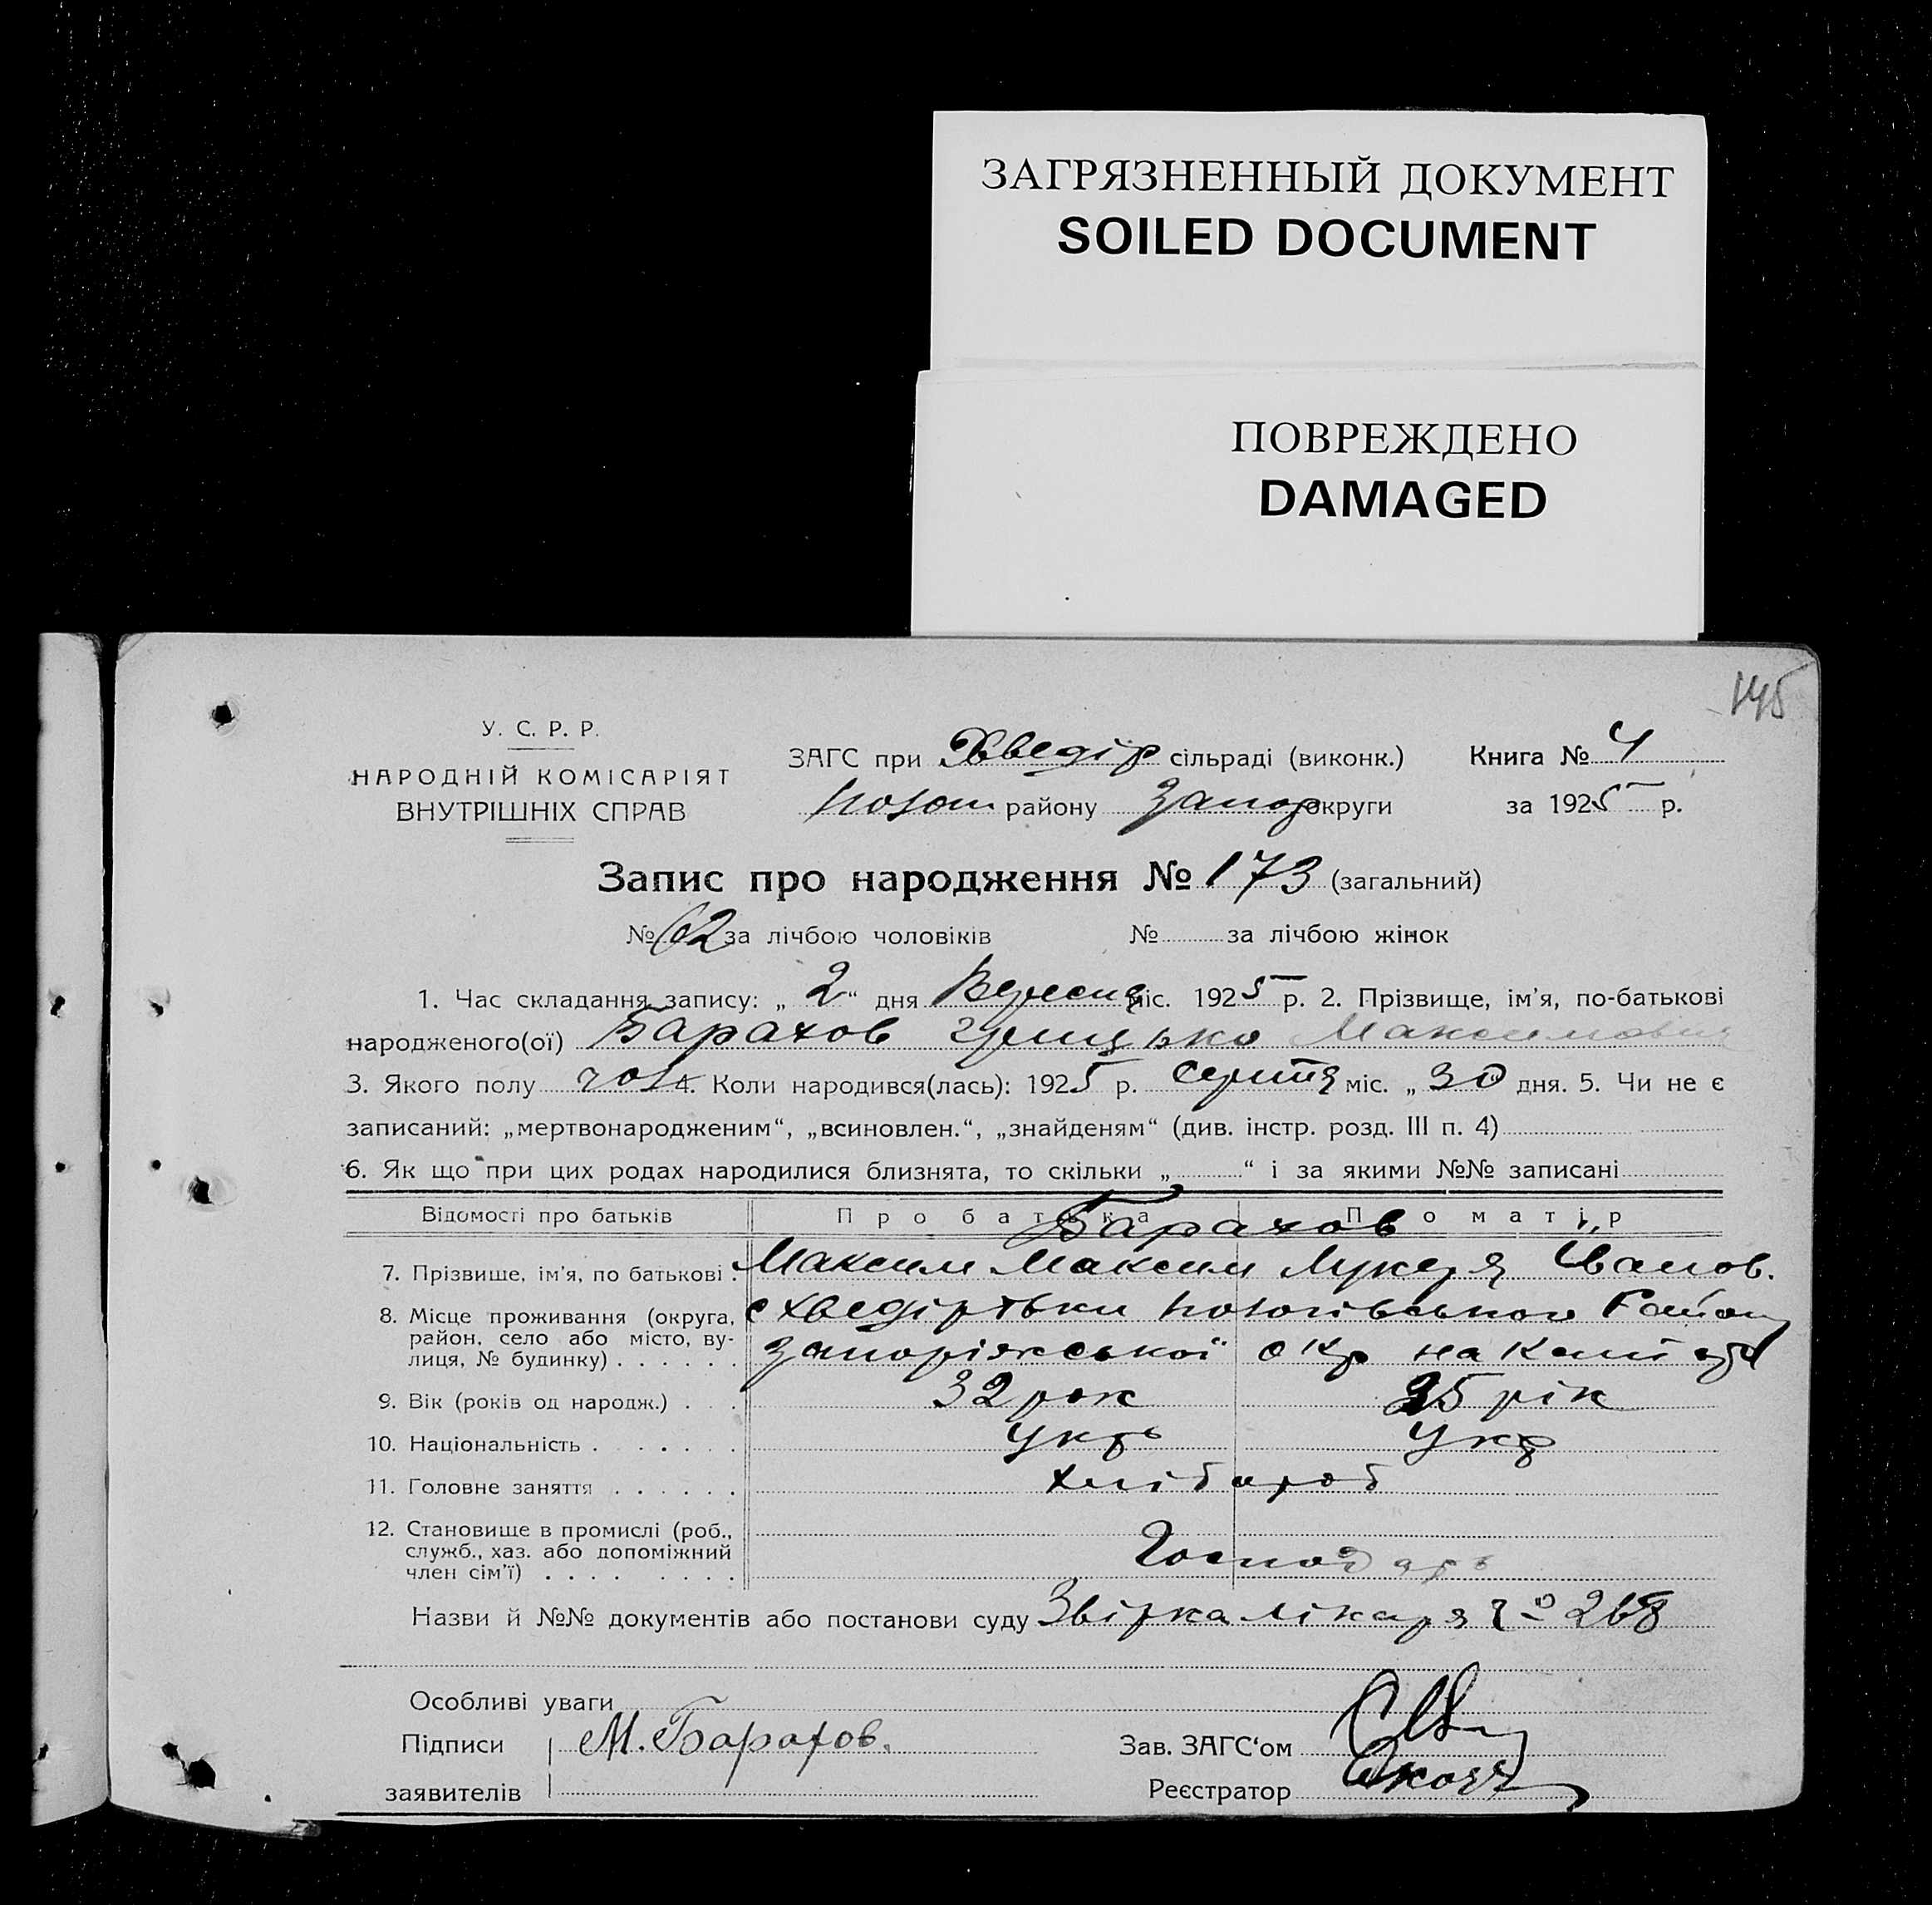 ЗАГРЯЗНЕННЫЙ ДОКУМЕНТ
SOILED DOCUMENT
ПОВРЕЖДЕНО
DAMAGED
145
У. С. Р. Р.
НАРОДНІЙ КОМІСАРІЯТ
ВНУТРІШНІХ СПРАВ
ЗАГС при Хведір сільраді (виконк.) Книга № 4
району Запор округи за 1925 р.
Запис про народження № 173 (загальний)
№ 62 за лічбою чоловіків № за лічбою жінок
1. Час складання запису: „ 2 “ дня Вересня міс. 1925 р. 2. Прізвище, ім'я, по-батькові
народженого(ої) Барахов Грицько Максимович
3. Якого полу чол 4. Коли народився(лась): 1925 р. Серпня міс. „ 30 дня. 5. Чи не є
записаний: „мертвонародженим“, „всиновлен.“, „знайденям“ (див. інстр. розд. III п. 4)
6. Як що при цих родах народилися близнята, то скільки „ “ і за якими №№ записані
Відомості про батьків Про батька Про матір
Барахов
7. Прізвище, ім'я, по батькові . Максим Максим Лукеря Іванов.
8. Місце проживання (округа, с Хведірівки Пологівського Району
район, село або місто, ву-
лиця, № будинку) . . . . . . Запоріжської окр
9. Вік (років од народж.) . . . 32 рок 35 рік
10. Національність . . . . . . Укр Укр
11. Головне заняття . . . . . . хлібороб
12. Становище в промислі (роб.,
служб., хаз. або допоміжний Господарь
член сім'ї) . . . . . . . .
Назви й №№ документів або постанови суду лікаря 268
Особливі уваги
Підписи М. Барахов. Зав. ЗАГС‘ом
заявителів Реєстратор